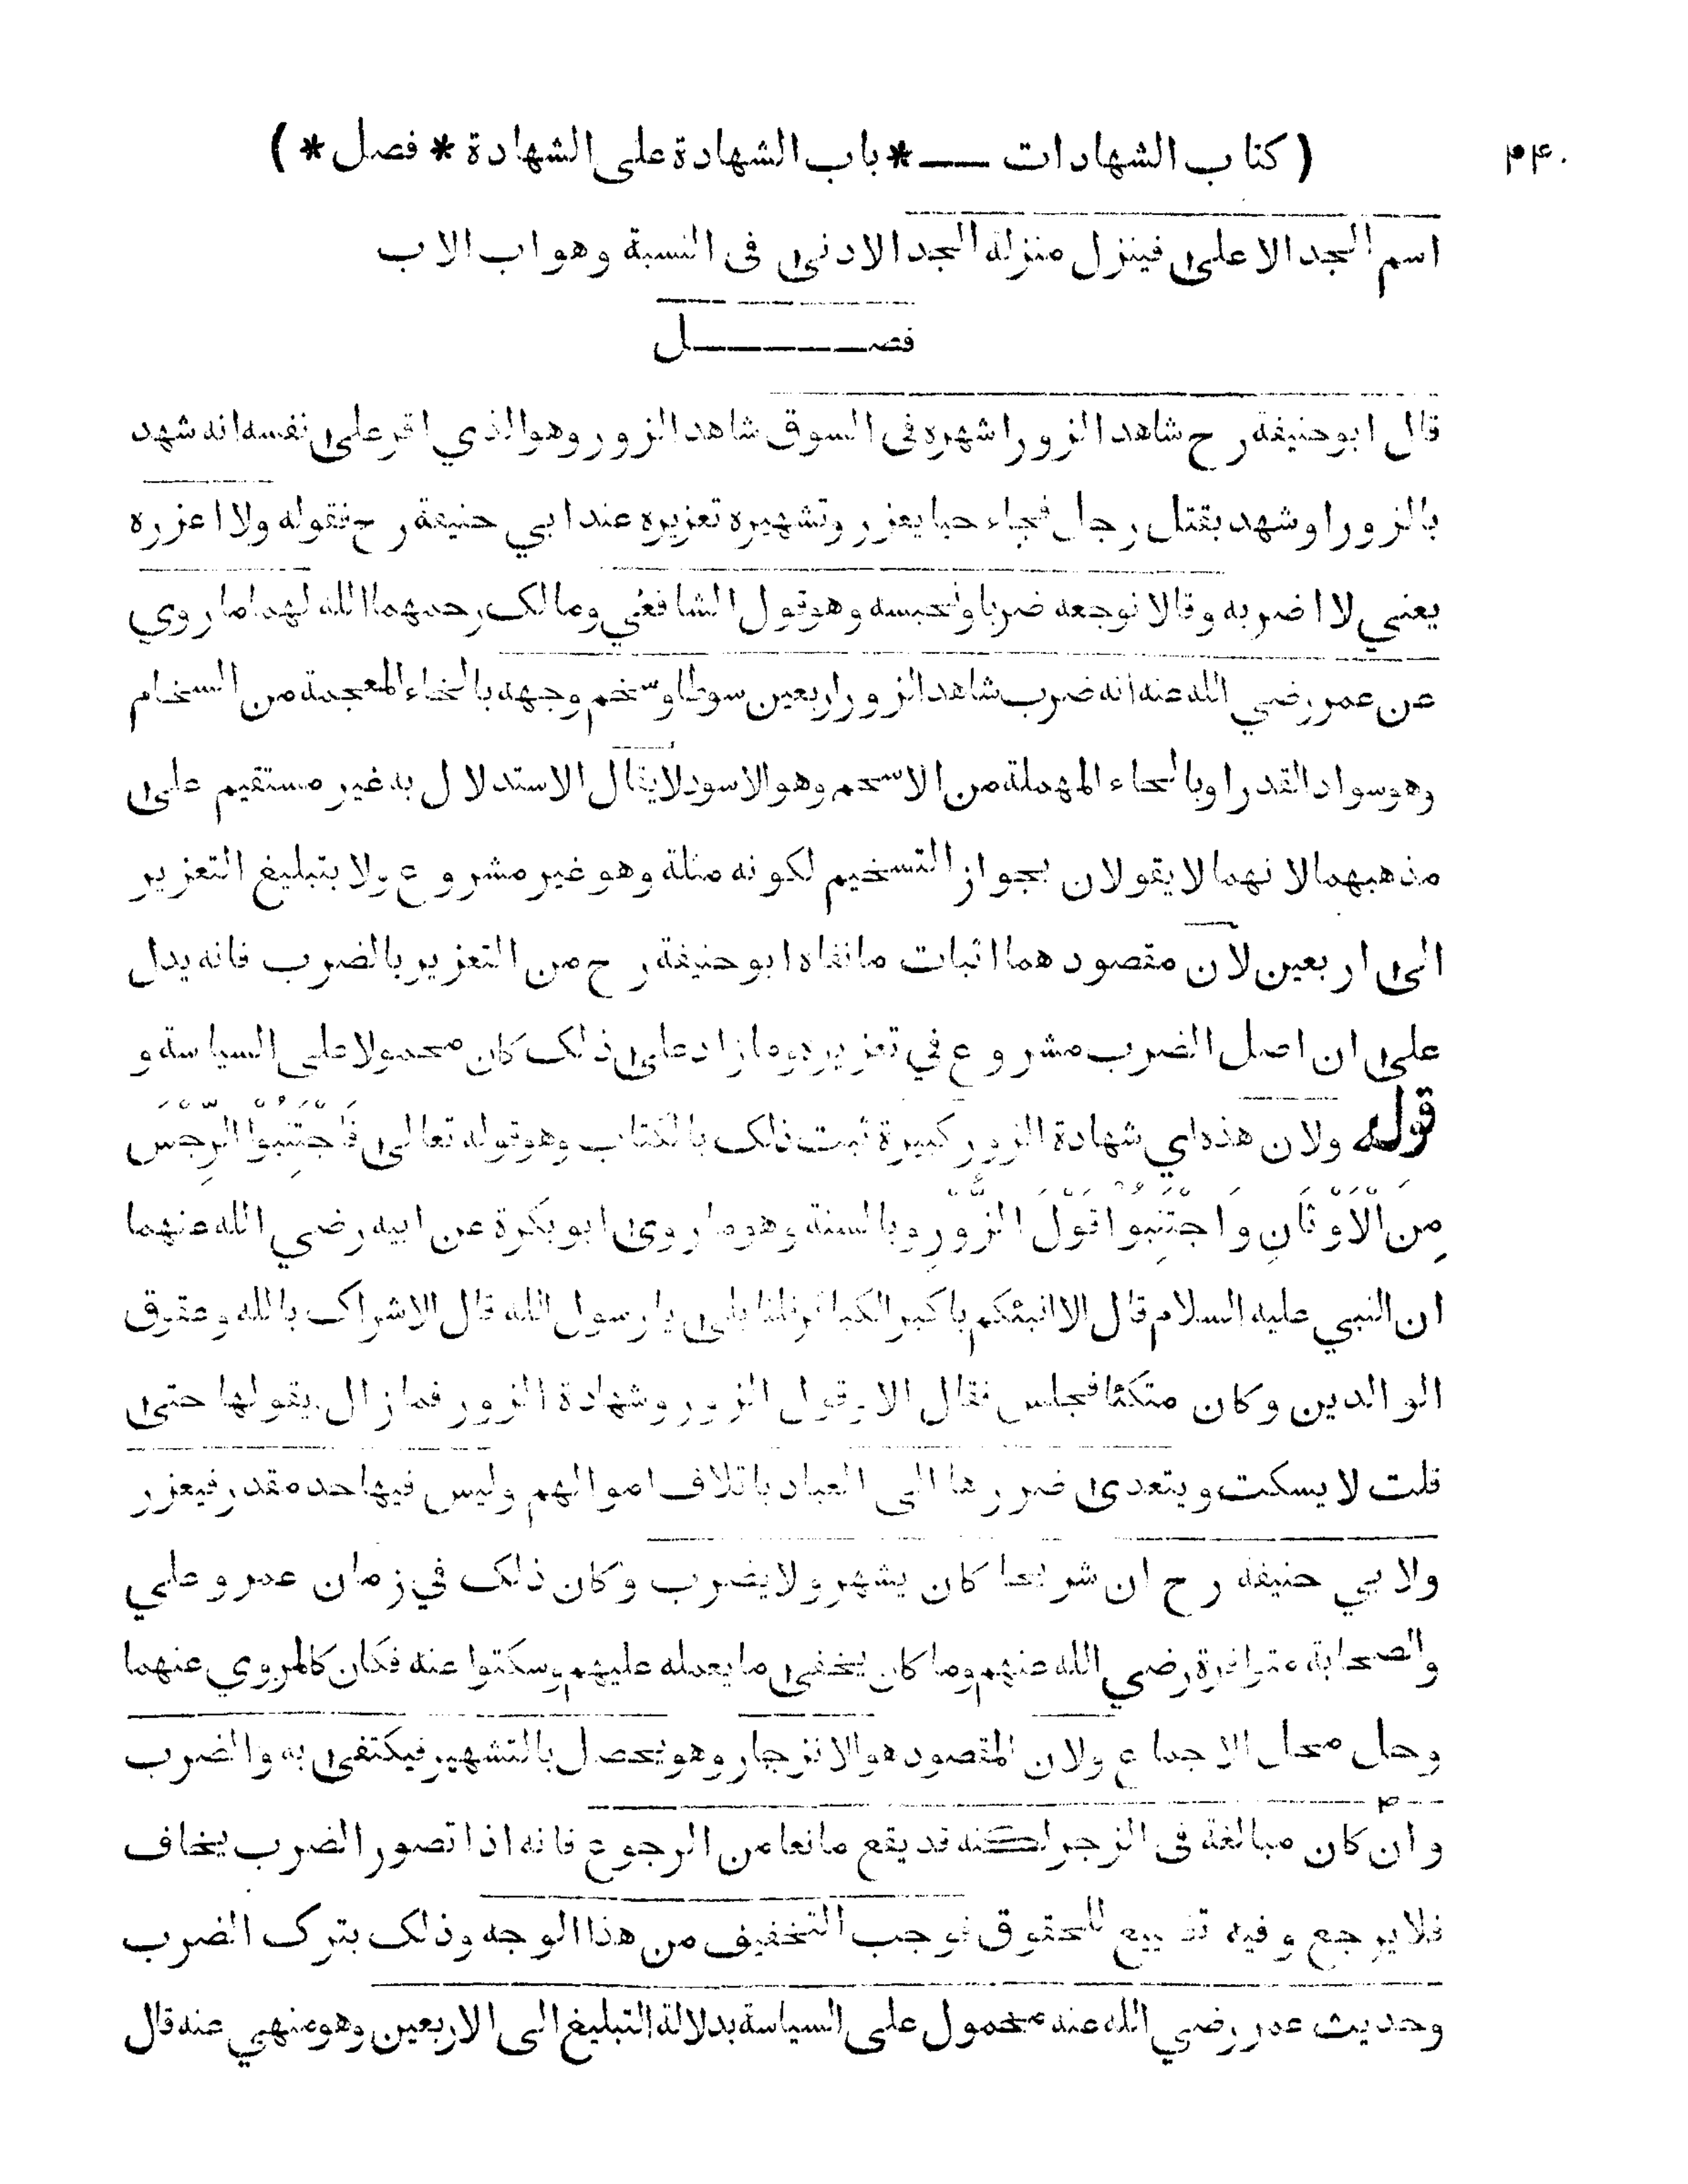 ( كتاب الشهادات — * باب الشهادة على الشهادة * فصل * ) ٣٤٠
اسم الجد الاعلى فينزل منزلة الجد الادنى فى النسبة وهو اب الاب
فصل
قال ابو حنيفة رح شاهد الزور اشهره فى السوق شاهد الزور وهو الذي اقر على نفسه انه شهد
بالزور او شهد بقتل رجل فجاء حيا يعزر وتشهيره تعزيره عند ابي حنيفة رح فقوله ولا اعزره
يعني لا اضربه وقالا نوجعه ضربا ونحبسه وهو قول الشافعي ومالك رحمهما الله لهما ما روي
عن عمر رضي الله عنه انه ضرب شاهد الزور اربعين سوطا وسخم وجهه بالخاء المعجمة من السخام
وهو سواد القدر او بالحاء المهملة من الاسحم وهو الاسود لا يقال الاستدلال به غير مستقيم على
مذهبهما لانهما لا يقولان بجواز التسخيم لكونه مثلة وهو غير مشروع ولا بتبليغ التعزير
الى اربعين لان مقصودهما اثبات ما نفاه ابو حنيفة رح من التعزير بالضرب فانه يدل
على ان اصل الضرب مشروع في تعزيره وما زاد على ذلك كان محمولا على السياسة و
قوله ولان هذه اي شهادة الزور كبيرة ثبت ذلك بالكتاب وهو قوله تعالى فَاجْتَنِبُوا الرِّجْسَ
مِنَ الْاَوْثَانِ وَاجْتَنِبُوا قَوْلَ الزُّورِ وبالسنة وهو ما روى ابو بكرة عن ابيه رضي الله عنهما
ان النبي عليه السلام قال الا انبئكم باكبر الكبائر قلنا بلى يا رسول الله قال الاشراك بالله وعقوق
الوالدين وكان متكئا فجلس فقال الا وقول الزور وشهادة الزور فما زال يقولها حتى
قلت لا يسكت ويتعدى ضررها الى العباد باتلاف اموالهم وليس فيها حد مقدر فيعزر
ولابي حنيفة رح ان شريحا كان يشهر ولا يضرب وكان ذلك في زمان عمر وعلي
والصحابة متوافرة رضي الله عنهم وما كان يخفى ما يعمله عليهم وسكتوا عنه فكان كالمروي عنهما
وحل محل الاجماع ولان المقصود هو الانزجار وهو يحصل بالتشهير فيكتفى به والضرب
وان كان مبالغة فى الزجر لكنه قد يقع مانعا من الرجوع فانه اذا تصور الضرب يخاف
فلا يرجع وفيه تضييع للحقوق فوجب التخفيف من هذا الوجه وذلك بترك الضرب
وحديث عمر رضي الله عنه محمول على السياسة بدلالة التبليغ الى الاربعين وهو منهي عنه قال